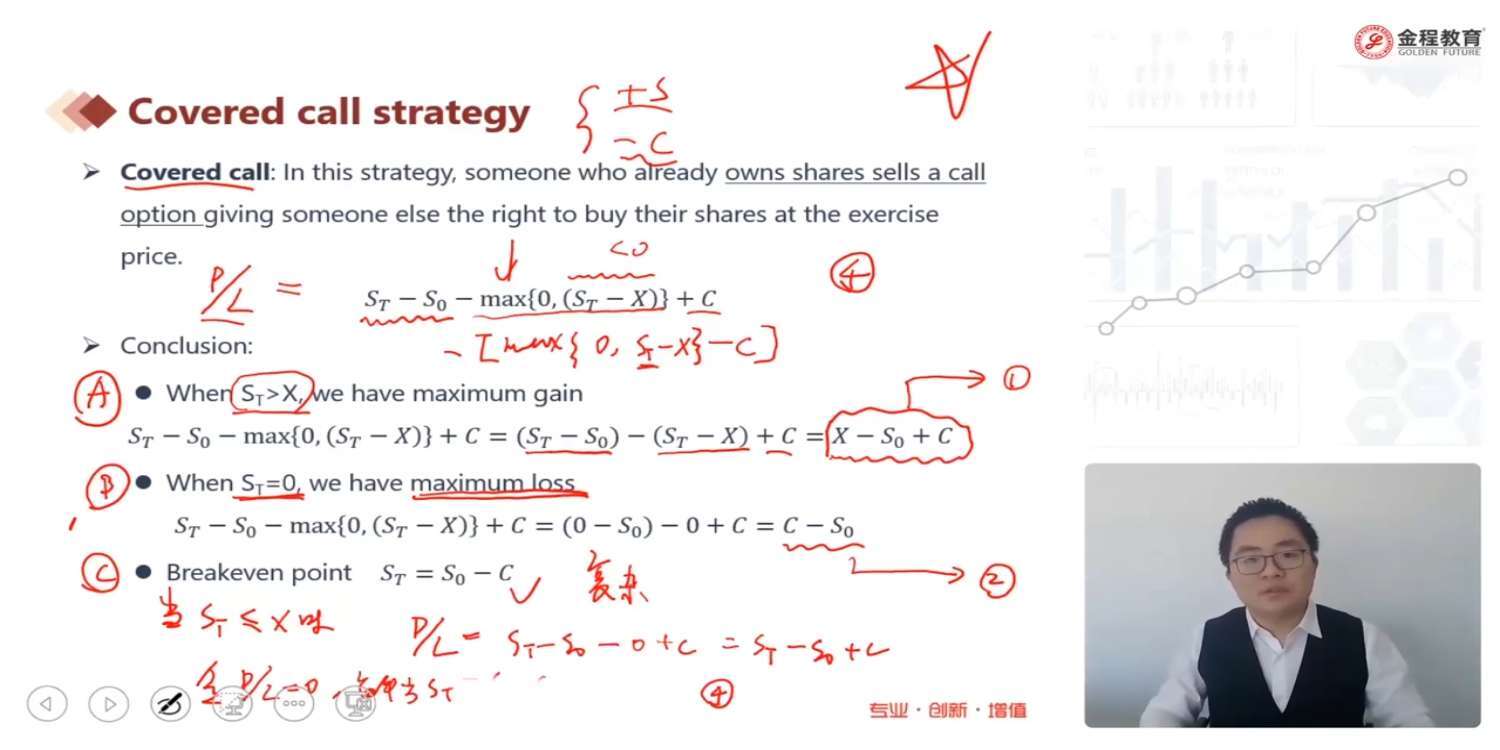 金程教育
GOLDEN FUTURE
Covered call strategy
+S
-C
➢ Covered call: In this strategy, someone who already owns shares sells a call
option giving someone else the right to buy their shares at the exercise
price.
<0
④
P/L =
S_T − S_0 − max{0, (S_T − X)} + C
➢ Conclusion:
- [max{0, S_T-X}-C]
A ● When S_T>X, we have maximum gain
①
S_T − S_0 − max{0, (S_T − X)} + C = (S_T − S_0) − (S_T − X) + C = X − S_0 + C
B ● When S_T=0, we have maximum loss
S_T − S_0 − max{0, (S_T − X)} + C = (0 − S_0) − 0 + C = C − S_0
C ● Breakeven point S_T = S_0 − C
复杂
②
当 S_T ≤ X 时
P/L = S_T - S_0 - 0 + C = S_T - S_0 + C
令 P/L = 0, S_T
④
专业·创新·增值